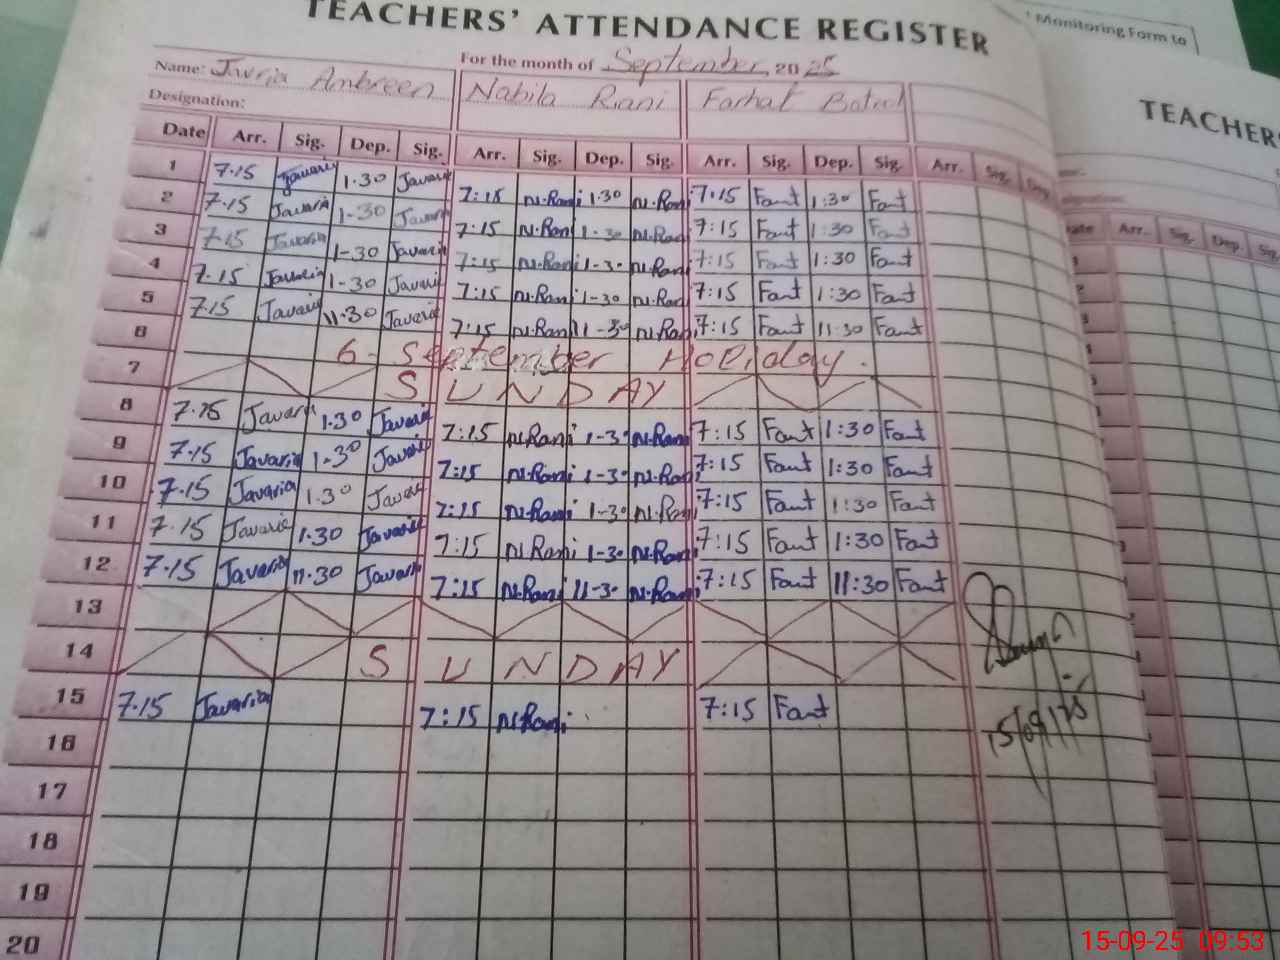 Monitoring Form to
TEACHERS' ATTENDANCE REGISTER
For the month of September 2025
Name: Javria Ambreen Nabila Rani Farhat Batool
Designation:
Date Arr. Sig. Dep. Sig. Arr. Sig. Dep. Sig. Arr. Sig. Dep. Sig. Arr. Sig. Dep.
1 7.15 Javaria 1.30 Javaria 7:15 N.Rani 1.30 N.Rani 7:15 Fant 1:30 Fant
2 7.15 Javaria 1-30 Javaria 7:15 N.Rani 1-30 N.Rani 7:15 Fant 1:30 Fant
3 7.15 Javaria 1-30 Javaria 7:15 N.Rani 1-30 N.Rani 7:15 Fant 1:30 Fant
4 7.15 Javaria 1-30 Javaria 7:15 N.Rani 1-30 N.Rani 7:15 Fant 1:30 Fant
5 7.15 Javaria 11.30 Javaria 7:15 N.Rani 11-30 N.Rani 7:15 Fant 11:30 Fant
6 6- September Holiday.
7 SUNDAY
8 7.15 Javaria 1.30 Javaria 7:15 N.Rani 1-30 N.Rani 7:15 Fant 1:30 Fant
9 7.15 Javaria 1-30 Javaria 7:15 N.Rani 1-30 N.Rani 7:15 Fant 1:30 Fant
10 7.15 Javaria 1.30 Javaria 7:15 N.Rani 1-30 N.Rani 7:15 Fant 1:30 Fant
11 7.15 Javaria 1.30 Javaria 7:15 N.Rani 1-30 N.Rani 7:15 Fant 1:30 Fant
12 7.15 Javaria 11.30 Javaria 7:15 N.Rani 11-30 N.Rani 7:15 Fant 11:30 Fant
13
14 SUNDAY
15 7.15 Javaria 7:15 N.Rani 7:15 Fant
15/09/25
16
17
18
19
20
TEACHER
Arr. Sig. Dep. Sig.
15-09-25 09:53